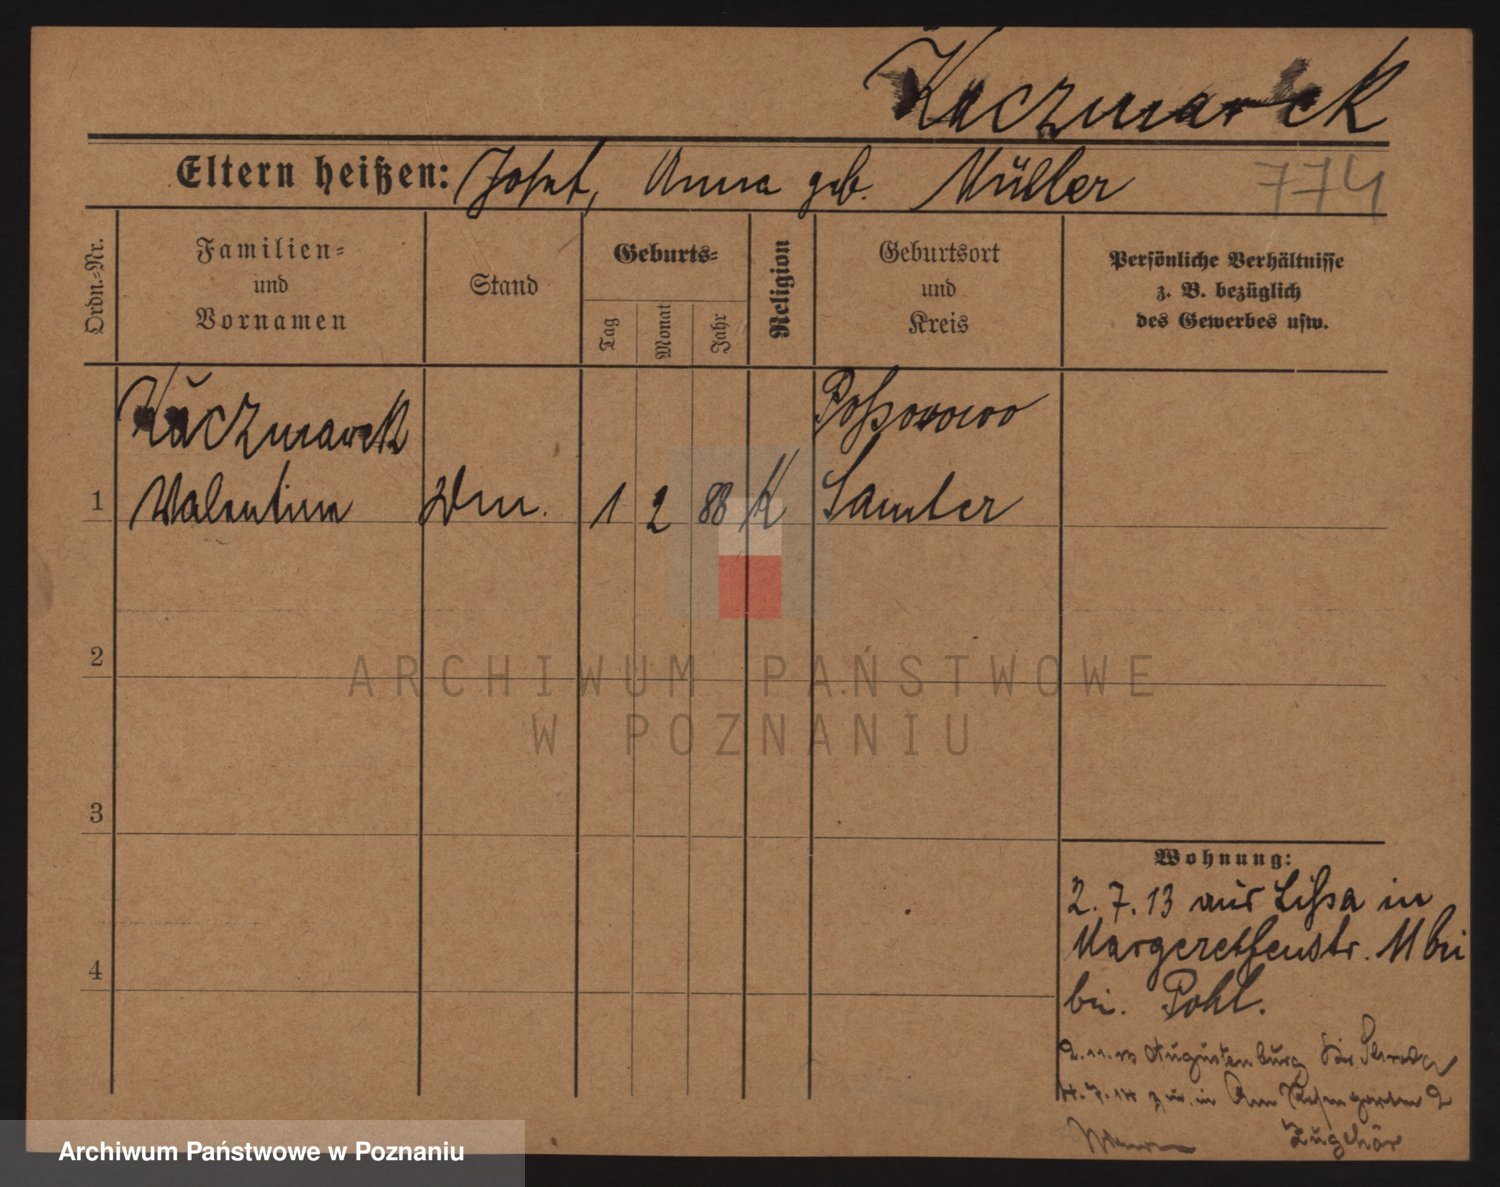 Kaczmarek
Eltern heißen: Josef, Anna geb. Müller 774
Ordn.-Nr.
Familien-
und
Vornamen
Stand
Geburts-
Tag
Monat
Jahr
Religion
Geburtsort
und
Kreis
Persönliche Verhältnisse
z. B. bezüglich
des Gewerbes usw.
Kaczmarek
1 Valentine 1 2 88 K
Samter
2
3
4
ARCHIWUM PAŃSTWOWE
W POZNANIU
Wohnung:
2. 7. 13 aus Lissa in
Margerethenstr. 11 bei
bei. Pohl.
Augustenburg
z. in Am
Zugehör
Archiwum Państwowe w Poznaniu